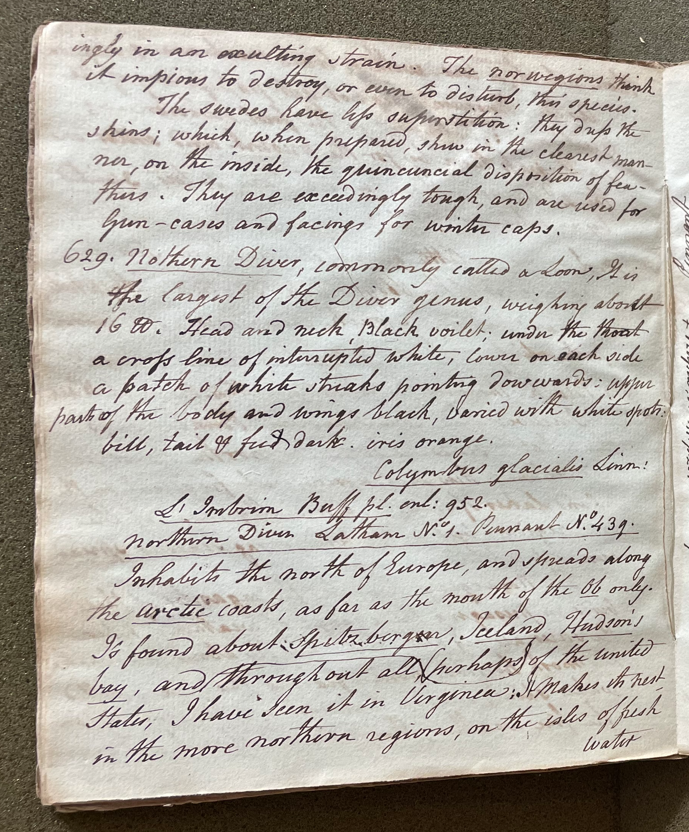 ingly in an exulting strain. The norwegions think
it impious to destroy, or even to disturb, this species.
The swedes have less superstition: they dress the
skins; which, when prepared, shew in the clearest man-
ner, on the inside, the quincuncial disposition of fea-
thers. They are exceedingly tough, and are used for
Gun-cases and facings for winter caps.
629. Nothern Diver, commonly called a Loon, It is
the largest of the Diver genus, weighing about
16 ℔. Head and neck Black voilet; under the throat
a cross line of interrupted white; lower on each side
a patch of white streaks pointing dowwards: upper
parts of the body and wings black, varied with white spots:
bill, tail & feet dark. iris orange.
Colymbus glacialis Linn:
L' Imbrim Buff pl. enl: 952.
northern Diver Latham No. 1. Pennant No. 439.
Inhabits the north of Europe, and spreads along
the arctic coasts, as far as the mouth of the Ob only.
Is found about Spitzbergen, Iceland, Hudson's
bay, and throughout all (perhaps) of the united
States, I have seen it in Virginea; It makes its nest
in the more northern regions, on the isles of fresh
water